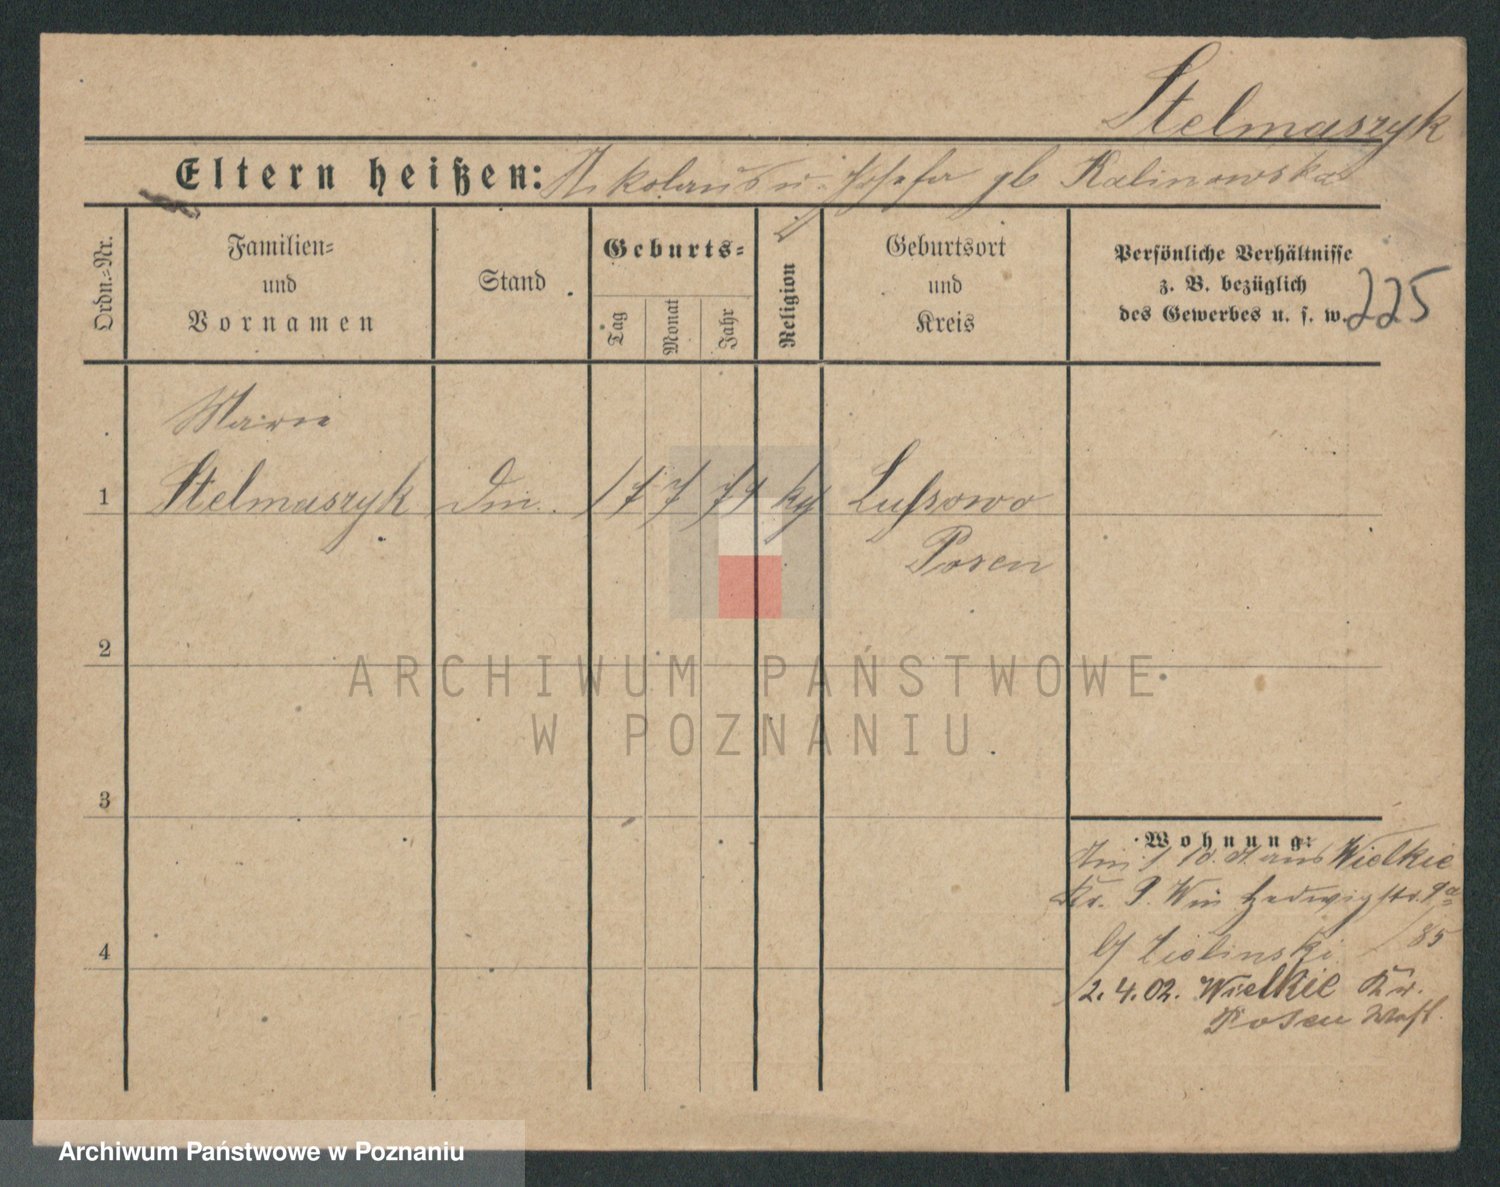 Stelmaszyk
Eltern heißen: Nikolaus u. Josefa gb Kalinowska
Ordn.-Nr.
Familien-
und
Vornamen
Stand
Geburts-
Tag
Monat
Jahr
Religion
Geburtsort
und
Kreis
Persönliche Verhältnisse
z. B. bezüglich
des Gewerbes u. s. w.
225
Marie
1 Stelmaszyk 17 7 Lussowo
Posen
2
3
4
Wohnung:
aus Wielkie
Kr. P. Hedwigstr. 9a
/85
2.4.02. Wielkie Kr.
Posen West.
ARCHIWUM PAŃSTWOWE
W POZNANIU
Archiwum Państwowe w Poznaniu